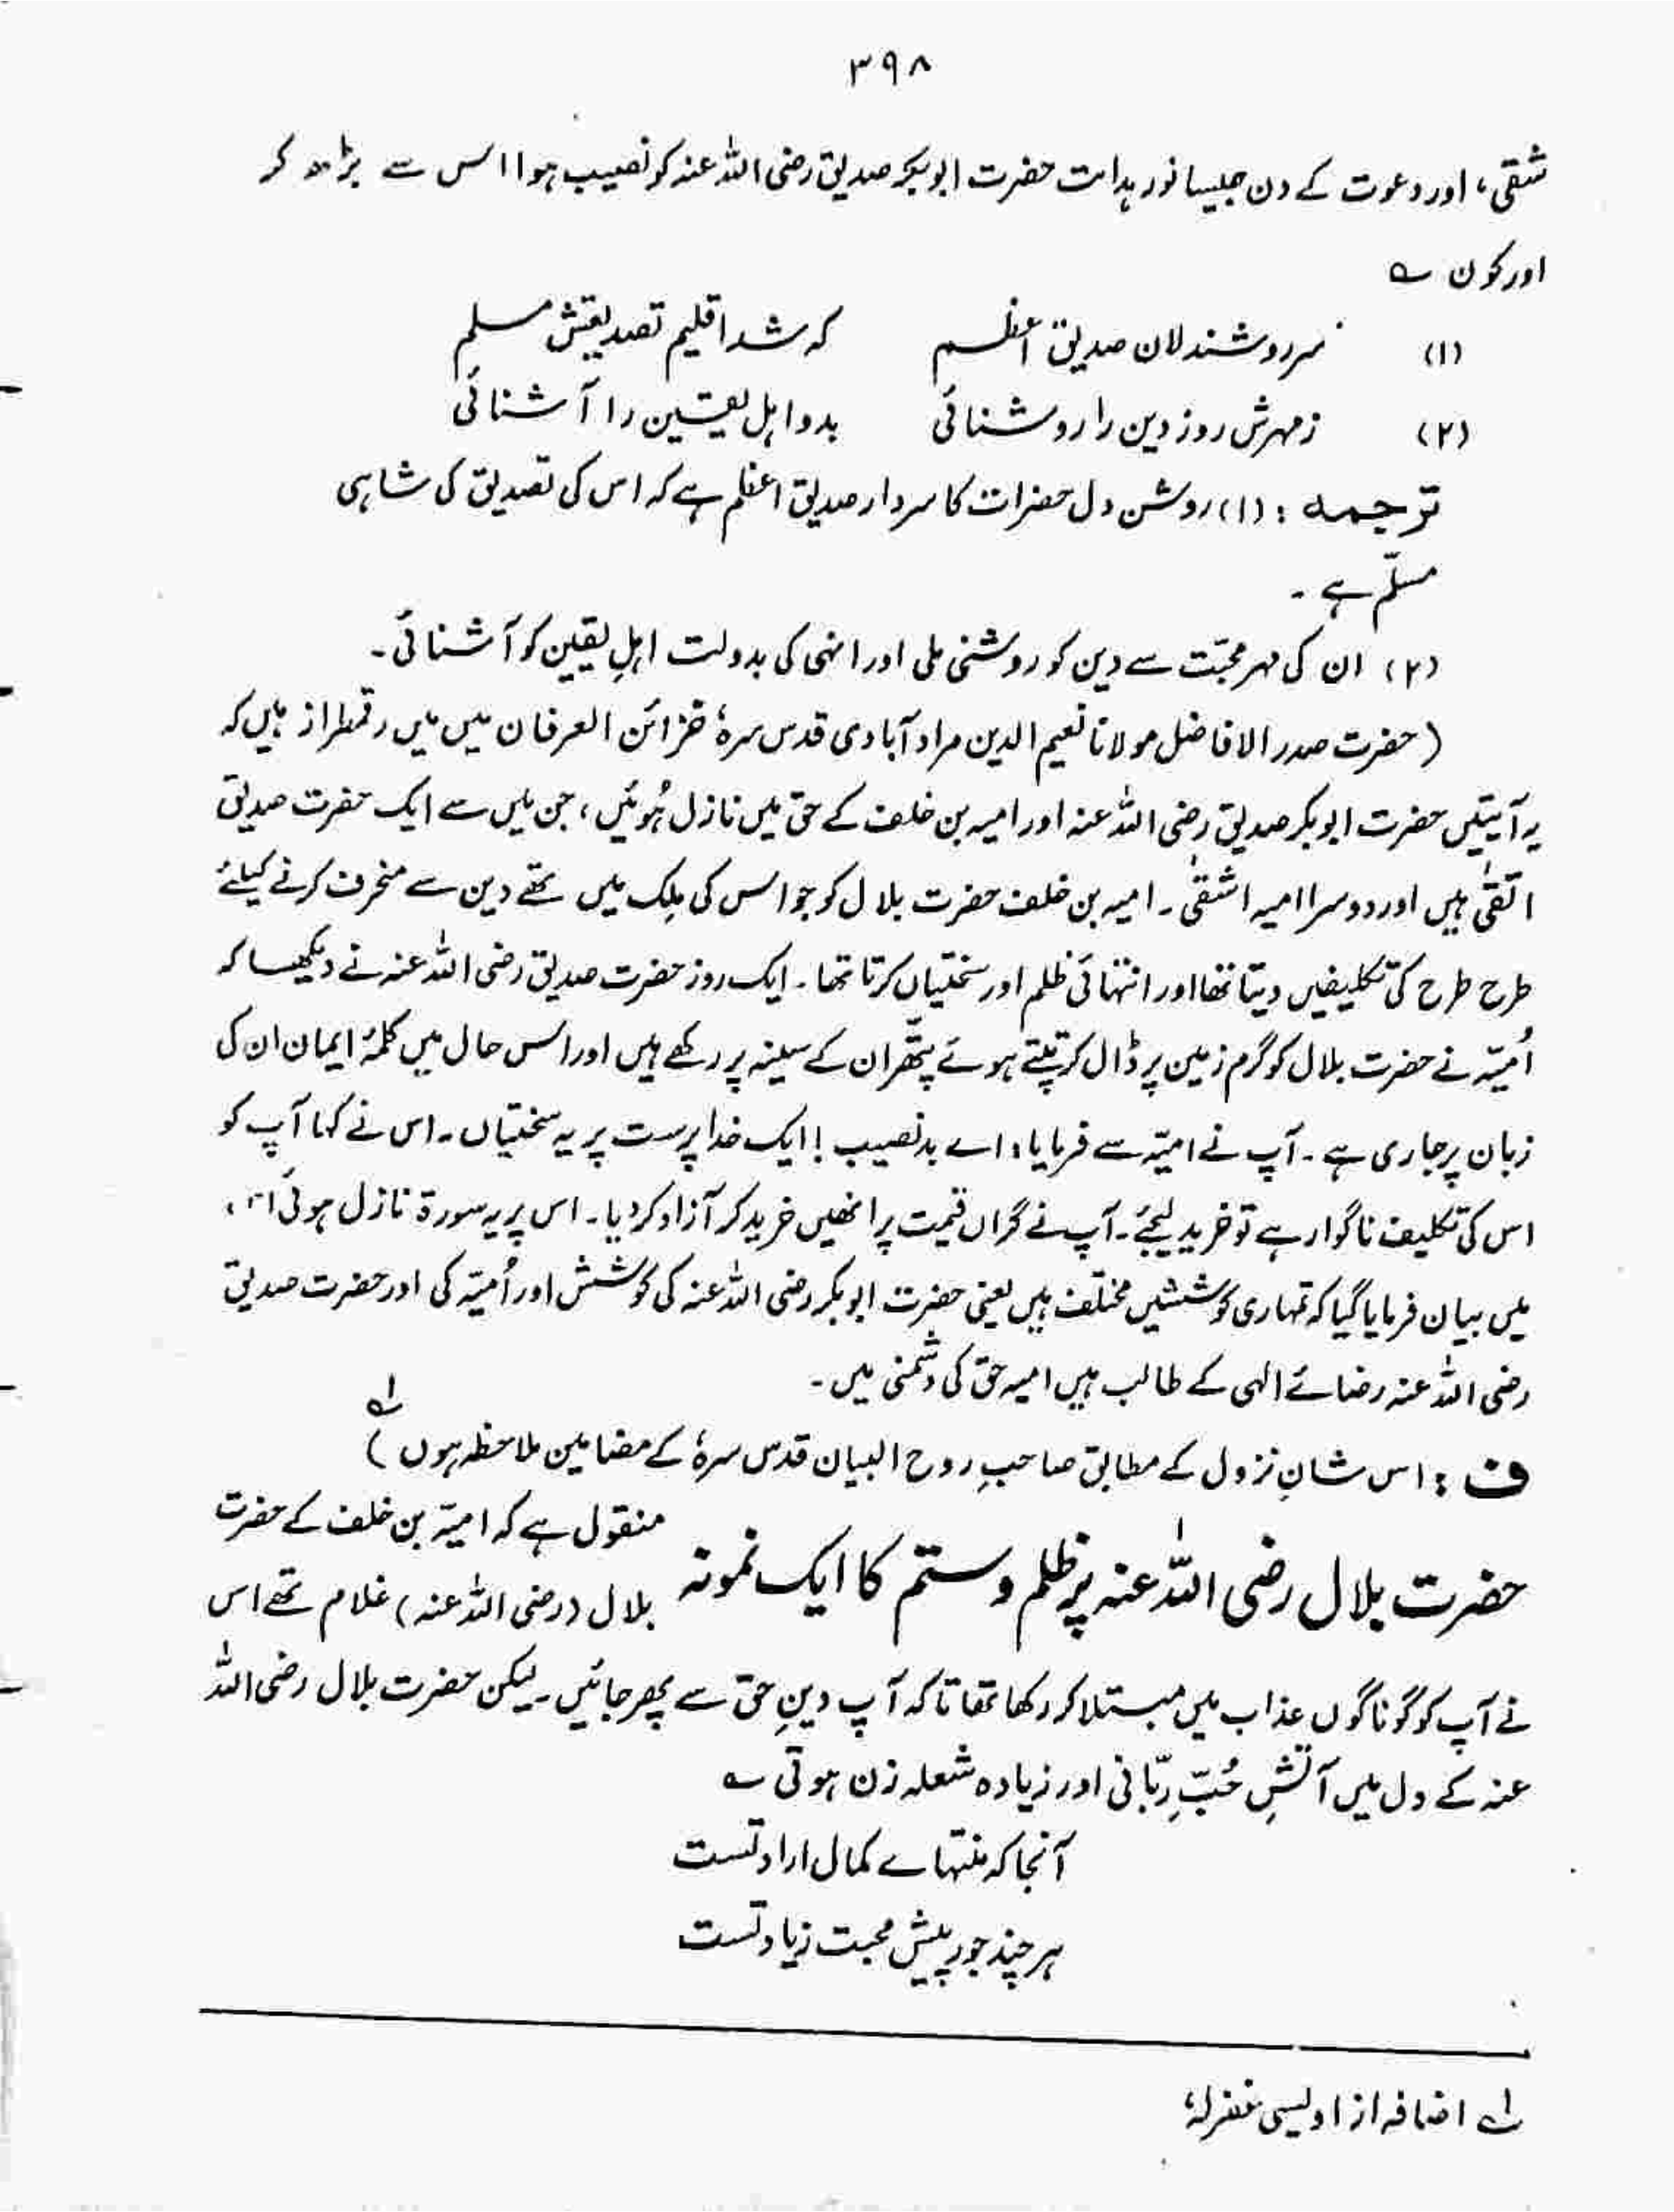 ۳۹۸
شقی، اور دعوت کے دن جیسا نور ہدایت حضرت ابوبکر صدیق رضی اللہ عنہ کو نصیب ہوا اس سے بڑھ کر
اور کون ؎
(۱) سر روشندلان صدیق اعظم کہ شد اقلیم تصدیقش مسلم
(۲) ز مہرش روز دین را روشنائی بدو اہل یقین را آشنائی
ترجمہ : (۱) روشن دل حضرات کا سردار صدیق اعظم ہے کہ اس کی تصدیق کی شاہی
مسلّم ہے ۔
(۲) ان کی مہر محبّت سے دین کو روشنی ملی اور انہی کی بدولت اہلِ یقین کو آشنائی ۔
(حضرت صدر الافاضل مولانا نعیم الدین مراد آبادی قدس سرہٗ خزائن العرفان میں میں رقمطراز ہیں کہ
یہ آیتیں حضرت ابوبکر صدیق رضی اللہ عنہ اور امیہ بن خلف کے حق میں نازل ہُوئیں، جن میں سے ایک حضرت صدیق
اتقیٰ ہیں اور دوسرا امیہ اشقیٰ ۔ امیہ بن خلف حضرت بلال کو جو اس کی مِلک میں تھے دین سے منحرف کرنے کیلئے
طرح طرح کی تکلیفیں دیتا تھا اور انتہائی ظلم اور سختیاں کرتا تھا ۔ ایک روز حضرت صدیق رضی اللہ عنہ نے دیکھا کہ
اُمیّہ نے حضرت بلال کو گرم زمین پر ڈال کر تپتے ہوئے پتّھر ان کے سینہ پر رکھے ہیں اور اس حال میں کلمۂ ایمان ان کی
زبان پر جاری ہے ۔ آپ نے امیّہ سے فرمایا : اے بدنصیب ! ایک خدا پرست پر یہ سختیاں ۔ اس نے کہا آپ کو
اس کی تکلیف ناگوار ہے تو خرید لیجئے ۔ آپ نے گراں قیمت پر انھیں خرید کر آزاد کر دیا ۔ اس پر یہ سورۃ نازل ہوئی
میں بیان فرمایا گیا کہ تمہاری کوششیں مختلف ہیں یعنی حضرت ابوبکر رضی اللہ عنہ کی کوشش اور اُمیّہ کی اور حضرت صدیق
رضی اللہ عنہ رضائے الٰہی کے طالب ہیں امیہ حق کی دشمنی میں ۔
ف : اس شانِ نزول کے مطابق صاحبِ روح البیان قدس سرہٗ کے مضامین ملاحظہ ہوں ) لہ
حضرت بلال رضی اللہ عنہ پر ظلم و ستم کا ایک نمونہ
منقول ہے کہ امیّہ بن خلف کے حضرت
بلال (رضی اللہ عنہ) غلام تھے اس
نے آپ کو گوناگوں عذاب میں مبتلا کر رکھا تھا تاکہ آپ دینِ حق سے پھر جائیں ۔ لیکن حضرت بلال رضی اللہ
عنہ کے دل میں آتشِ حُبِّ ربّانی اور زیادہ شعلہ زن ہوتی ؎
آنجا کہ منتہاے کمال ارادتست
ہر چند جور پیش محبت زیادتست
لہ اضافہ از اویسی غفرلہٗ